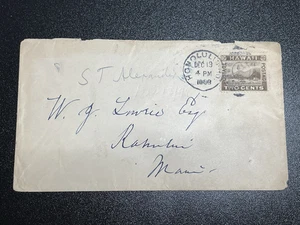 S T Alexander
HONOLULU
DEC 13
4 PM
HAWAII
TWO CENTS
W. J. Lowrie Esq
Kahului
Maui